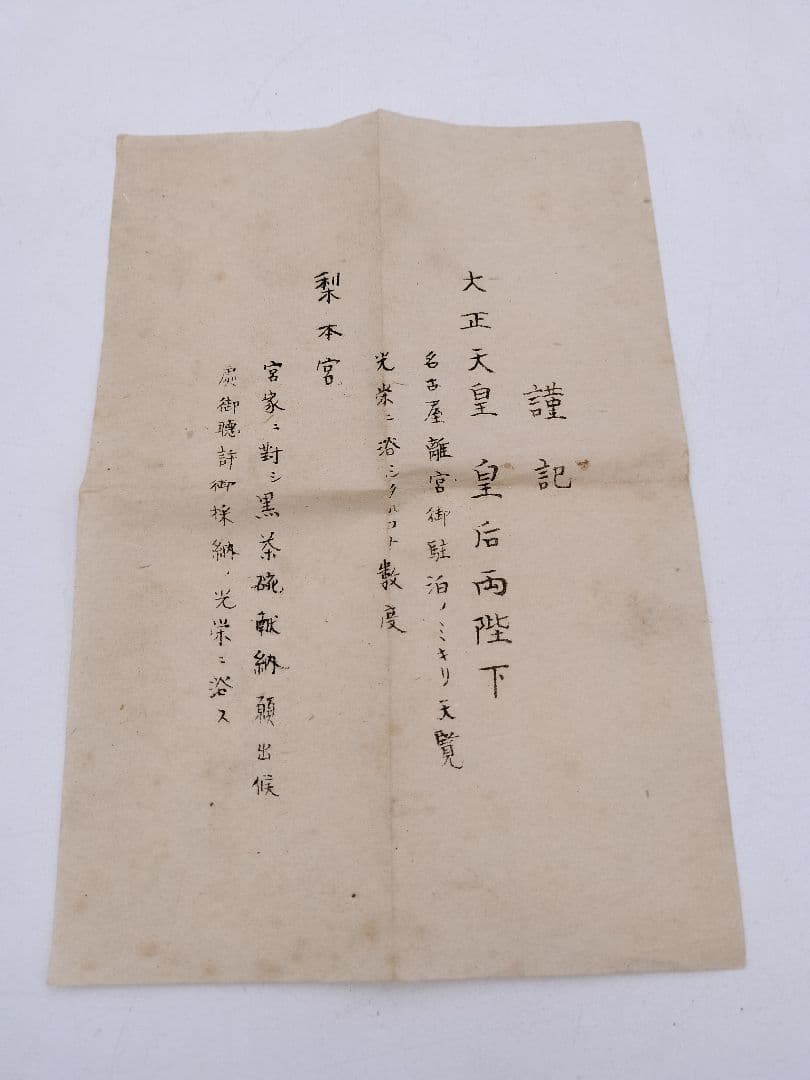 謹記
大正天皇 皇后両陛下
名古屋離宮御駐泊ノミキリ天覧
光栄ニ浴シタルコト数度
梨本宮
宮家ニ對シ黒茶碗献納願出候
處御聴許御採納ノ光栄ニ浴ス